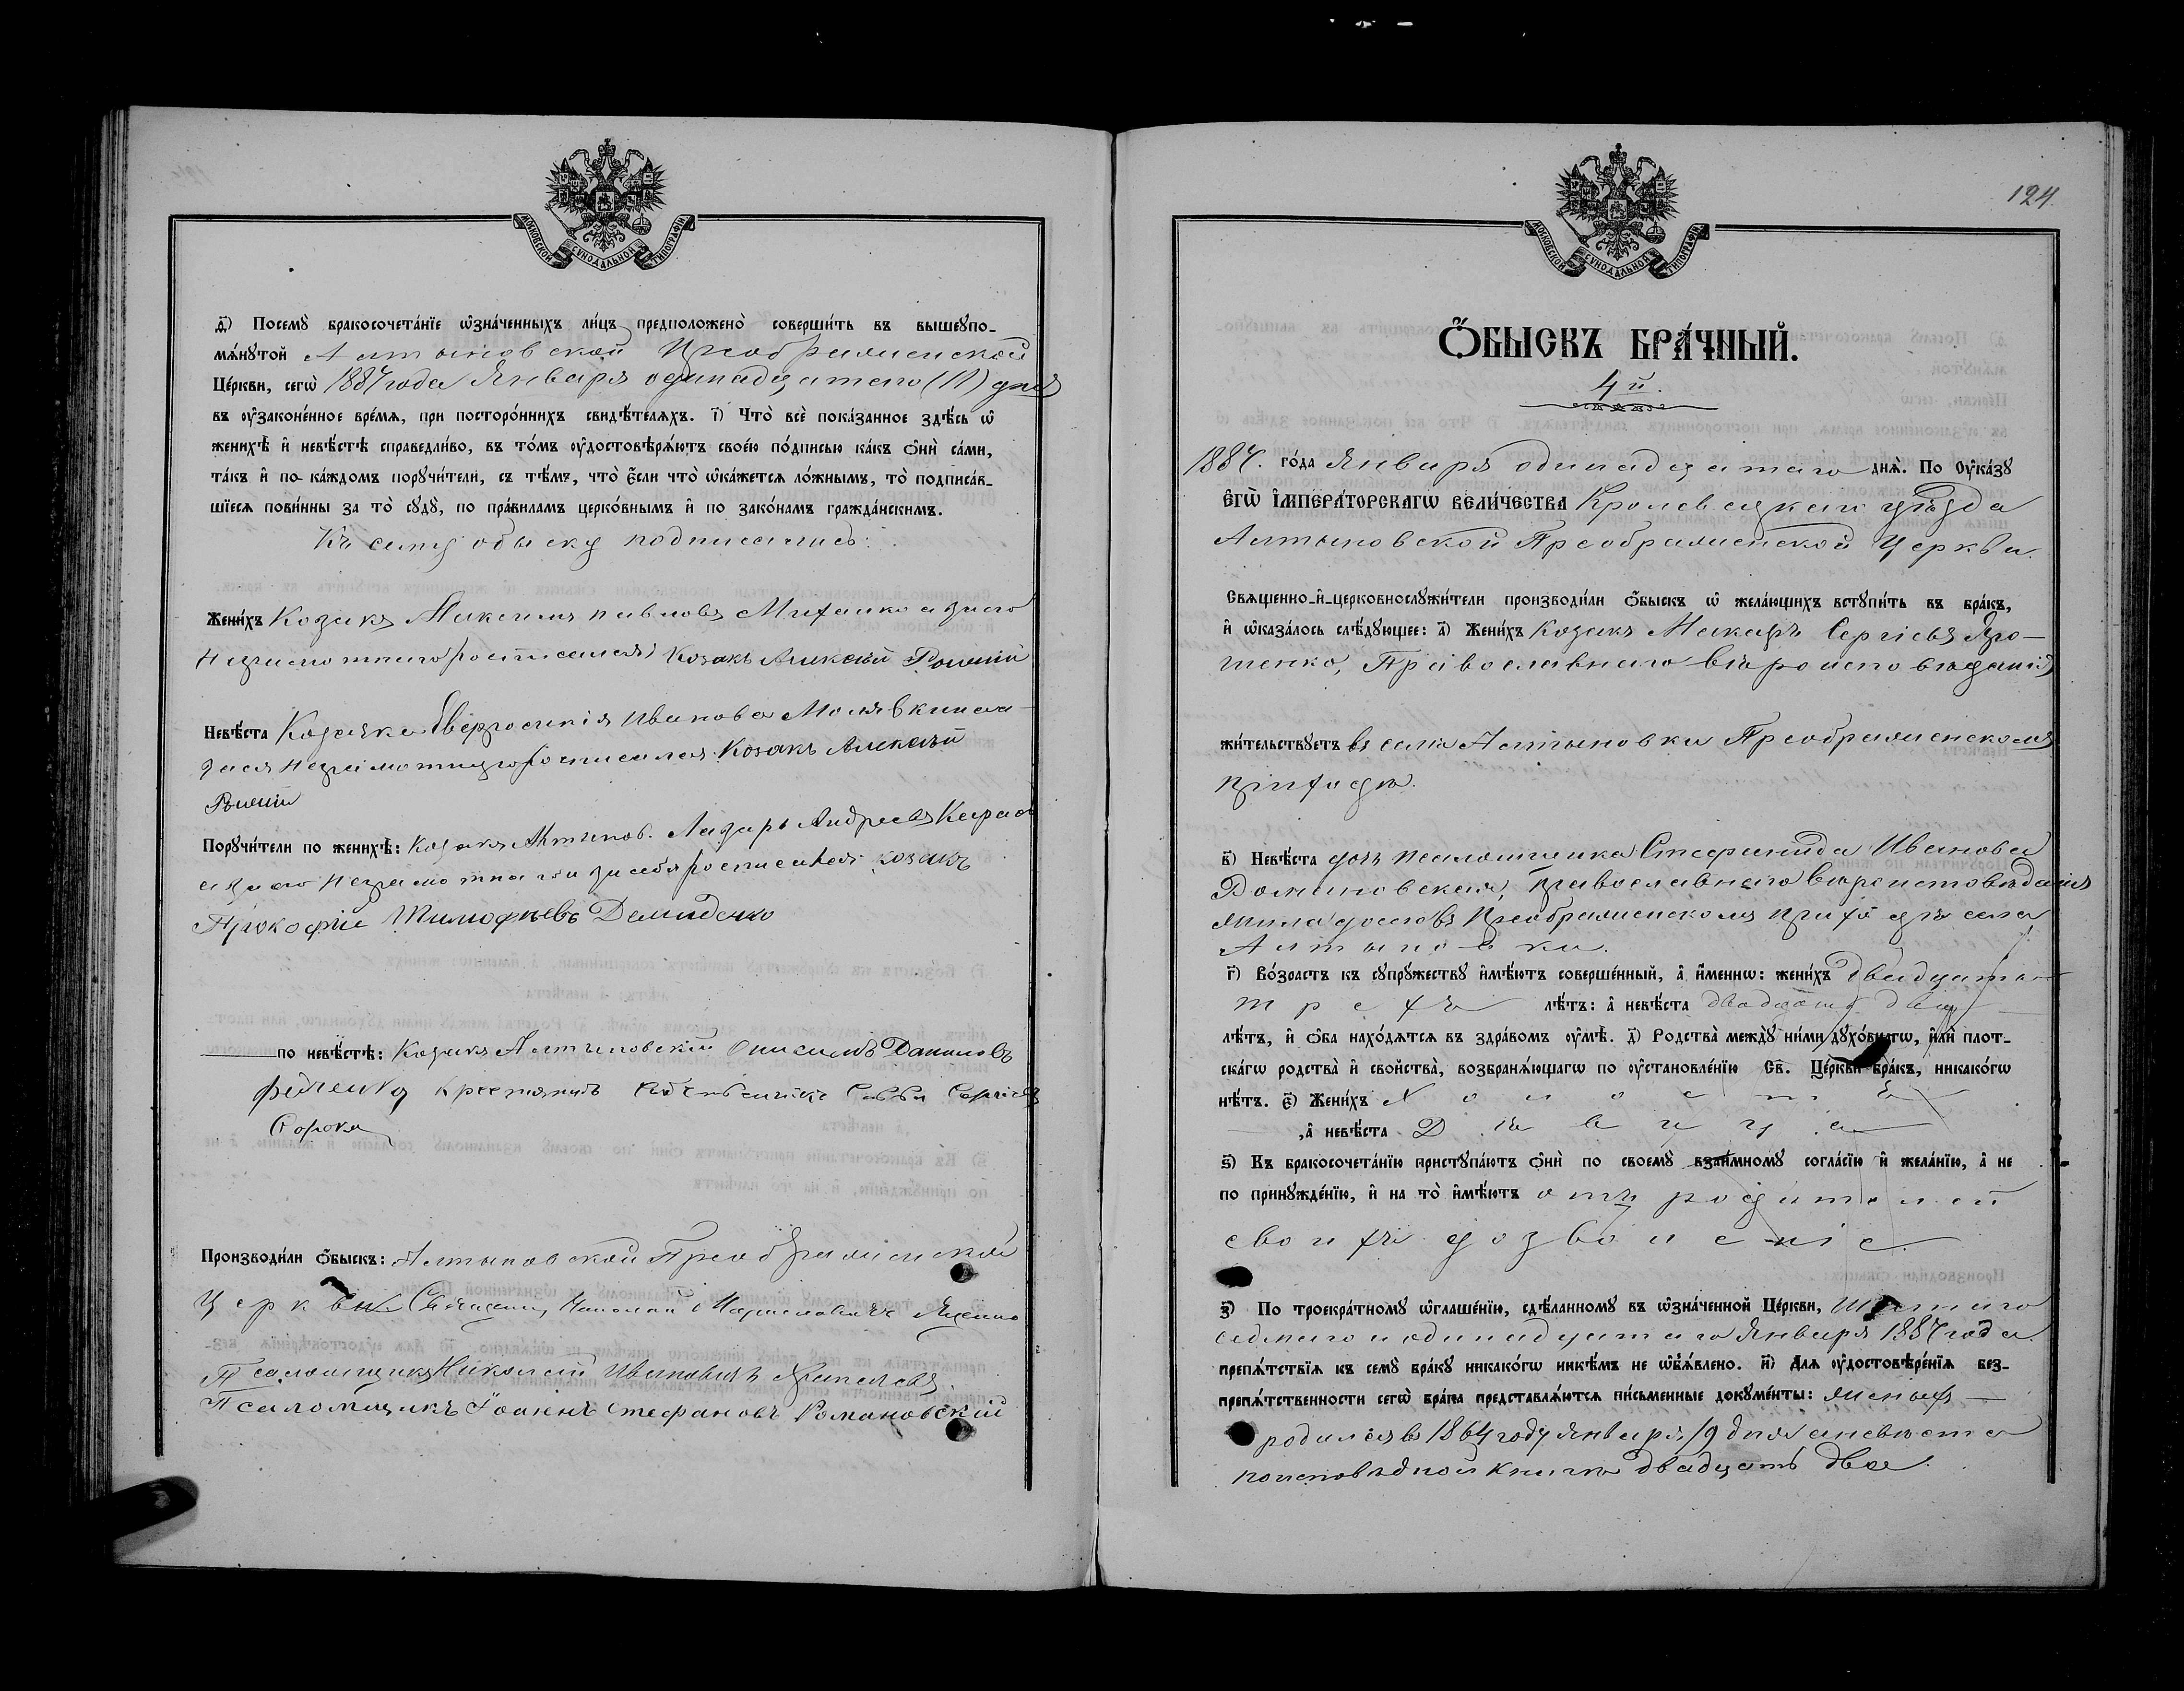 МОСКОВСКОЙ СѴНОДАЛЬНОЙ ТИПОГРАФІИ
д҃і) Посемꙋ̀ бракосочета́нїе ѡ҆зна́ченныхъ ли́цъ предположено̀ соверши́ть въ вышеꙋпо-
мѧ́нꙋтой Алтыновской Преображенской
Це́ркви, сегѡ̀ 1887 года Января одинадцатого (11) дня
въ ᲂу҆законе́нное вре́мѧ, при посторо́ннихъ свидѣ́телѧхъ. і҃) Что̀ всѐ пока́занное здѣ́сь ѡ҆
женихѣ̀ и҆ невѣ́стѣ справедли́во, въ то́мъ ᲂу҆достовѣрѧ́ютъ свое́ю по́дписью ка́къ ѻ҆нѝ са́ми,
та́къ и҆ по ка́ждомъ порꙋчи́тели, съ тѣ́мъ, что̀ є҆́сли что̀ ѡ҆ка́жетсѧ ло́жнымъ, то̀ подписа́в-
шїесѧ пови́нны за то̀ сꙋдꙋ̀, по пра́виламъ церко́внымъ и҆ по зако́намъ гражда́нскимъ.
Къ сему обыску подписались:
Жени́хъ Козакъ Максимъ Павловъ Михайко а заего
Неграмотнаго росписался Козакъ Алексѣй
Невѣ́ста Козачка Иванова
зася Неграмотную росписался Козакъ Алексѣй
Порꙋчи́тели по женихѣ̀: Козакъ Алтынов. Лазарь Андреевъ
а заего Неграмотнаго и засебя росписался козакъ
Прокофіе Тимофѣевъ Демиденко
по невѣ́стѣ: Козакъ Алтыновскій Онисимъ Даниловъ
Феденко крестянинъ Савва Сергіевъ
Сорока
Производи́ли ѻ҆́быскъ: Алтыновской Преображенской
Церкви Священ. Николай Ященко
Псаломщикъ Николай Ивановичъ
Псаломщикъ Іоаннъ Стефановъ Романовскій
124.
МОСКОВСКОЙ СѴНОДАЛЬНОЙ ТИПОГРАФІИ
Ѻ҆́БЫСКЪ БРА́ЧНЫЙ.
4й.
1887. го́да Января одинадцатаго днѧ̀. По Оу҆ка́зꙋ
Є҆гѡ̀ І҆мпера́торскагѡ вели́чества Кролевецкаго уѣзда
Алтыновской Преображенской Церкви.
Свѧщенно-и҆-церковнослꙋжи́тели производи́ли ѻ҆́быскъ ѡ҆ жела́ющихъ встꙋпи́ть въ бра́къ,
и҆ ѡ҆каза́лось слѣ́дꙋющее: а҃) Жени́хъ Козакъ Макаръ Сергіевъ Яро-
шенко, Православнаго вѣроисповѣданія
жи́тельствꙋетъ въ селѣ Алтыновки Преображенскомъ
приходѣ.
в҃) Невѣ́ста дочь псаломщика Стефанида Иванова
Романовская, православнаго вѣроисповѣданія
Преображенскомъ приходѣ села
Алтыновки.
г҃) Во́зрастъ къ сꙋпрꙋ́жествꙋ и҆мѣ́ютъ соверше́нный, а҆ и҆́меннѡ: жени́хъ двадцать
трехъ лѣ́тъ: а҆ невѣ́ста двадцать два
лѣ́тъ, и҆ ѻ҆́ба нахо́дѧтсѧ въ здра́вомъ ᲂу҆мѣ̀. д҃) Родства̀ междꙋ̀ ни́ми дꙋхо́внагѡ, и҆лѝ плот-
ска́гѡ родства̀ и҆ сво́йства̀, возбранѧ́ющагѡ по ᲂу҆становле́нїю Св. Це́ркви бра́къ, никако́гѡ
нѣ́тъ. є҃) Жени́хъ Холостъ
,а҆ невѣ́ста Дѣвица
ѕ҃) Къ бракосочета́нїю пристꙋпа́ютъ ѻ҆нѝ по своемꙋ̀ взаи́мномꙋ согла́сїю и҆ жела́нїю, а҆ не
по принꙋжде́нїю, и҆ на то̀ и҆мѣ́ютъ отъ родителей
своихъ дозволеніе.
з҃) По троекра́тномꙋ ѡ҆глаше́нїю, сдѣ́ланномꙋ въ ѡ҆зна́ченной Це́ркви, шестаго
седмаго и одинадцатаго Января 1887 года
препѧ́тствїѧ къ семꙋ̀ бра́кꙋ никако́гѡ никѣ́мъ не ѡ҆бъѧ́влено. и҃) Для ᲂу҆достовѣре́нїѧ без-
препѧ́тственности сегѡ̀ бра́ка представлѧ́ютсѧ пи́сьменные докꙋме́нты: женихъ
родился въ 1864 году Января 19 дня а невѣста
по исповѣдной книги двадцать два.